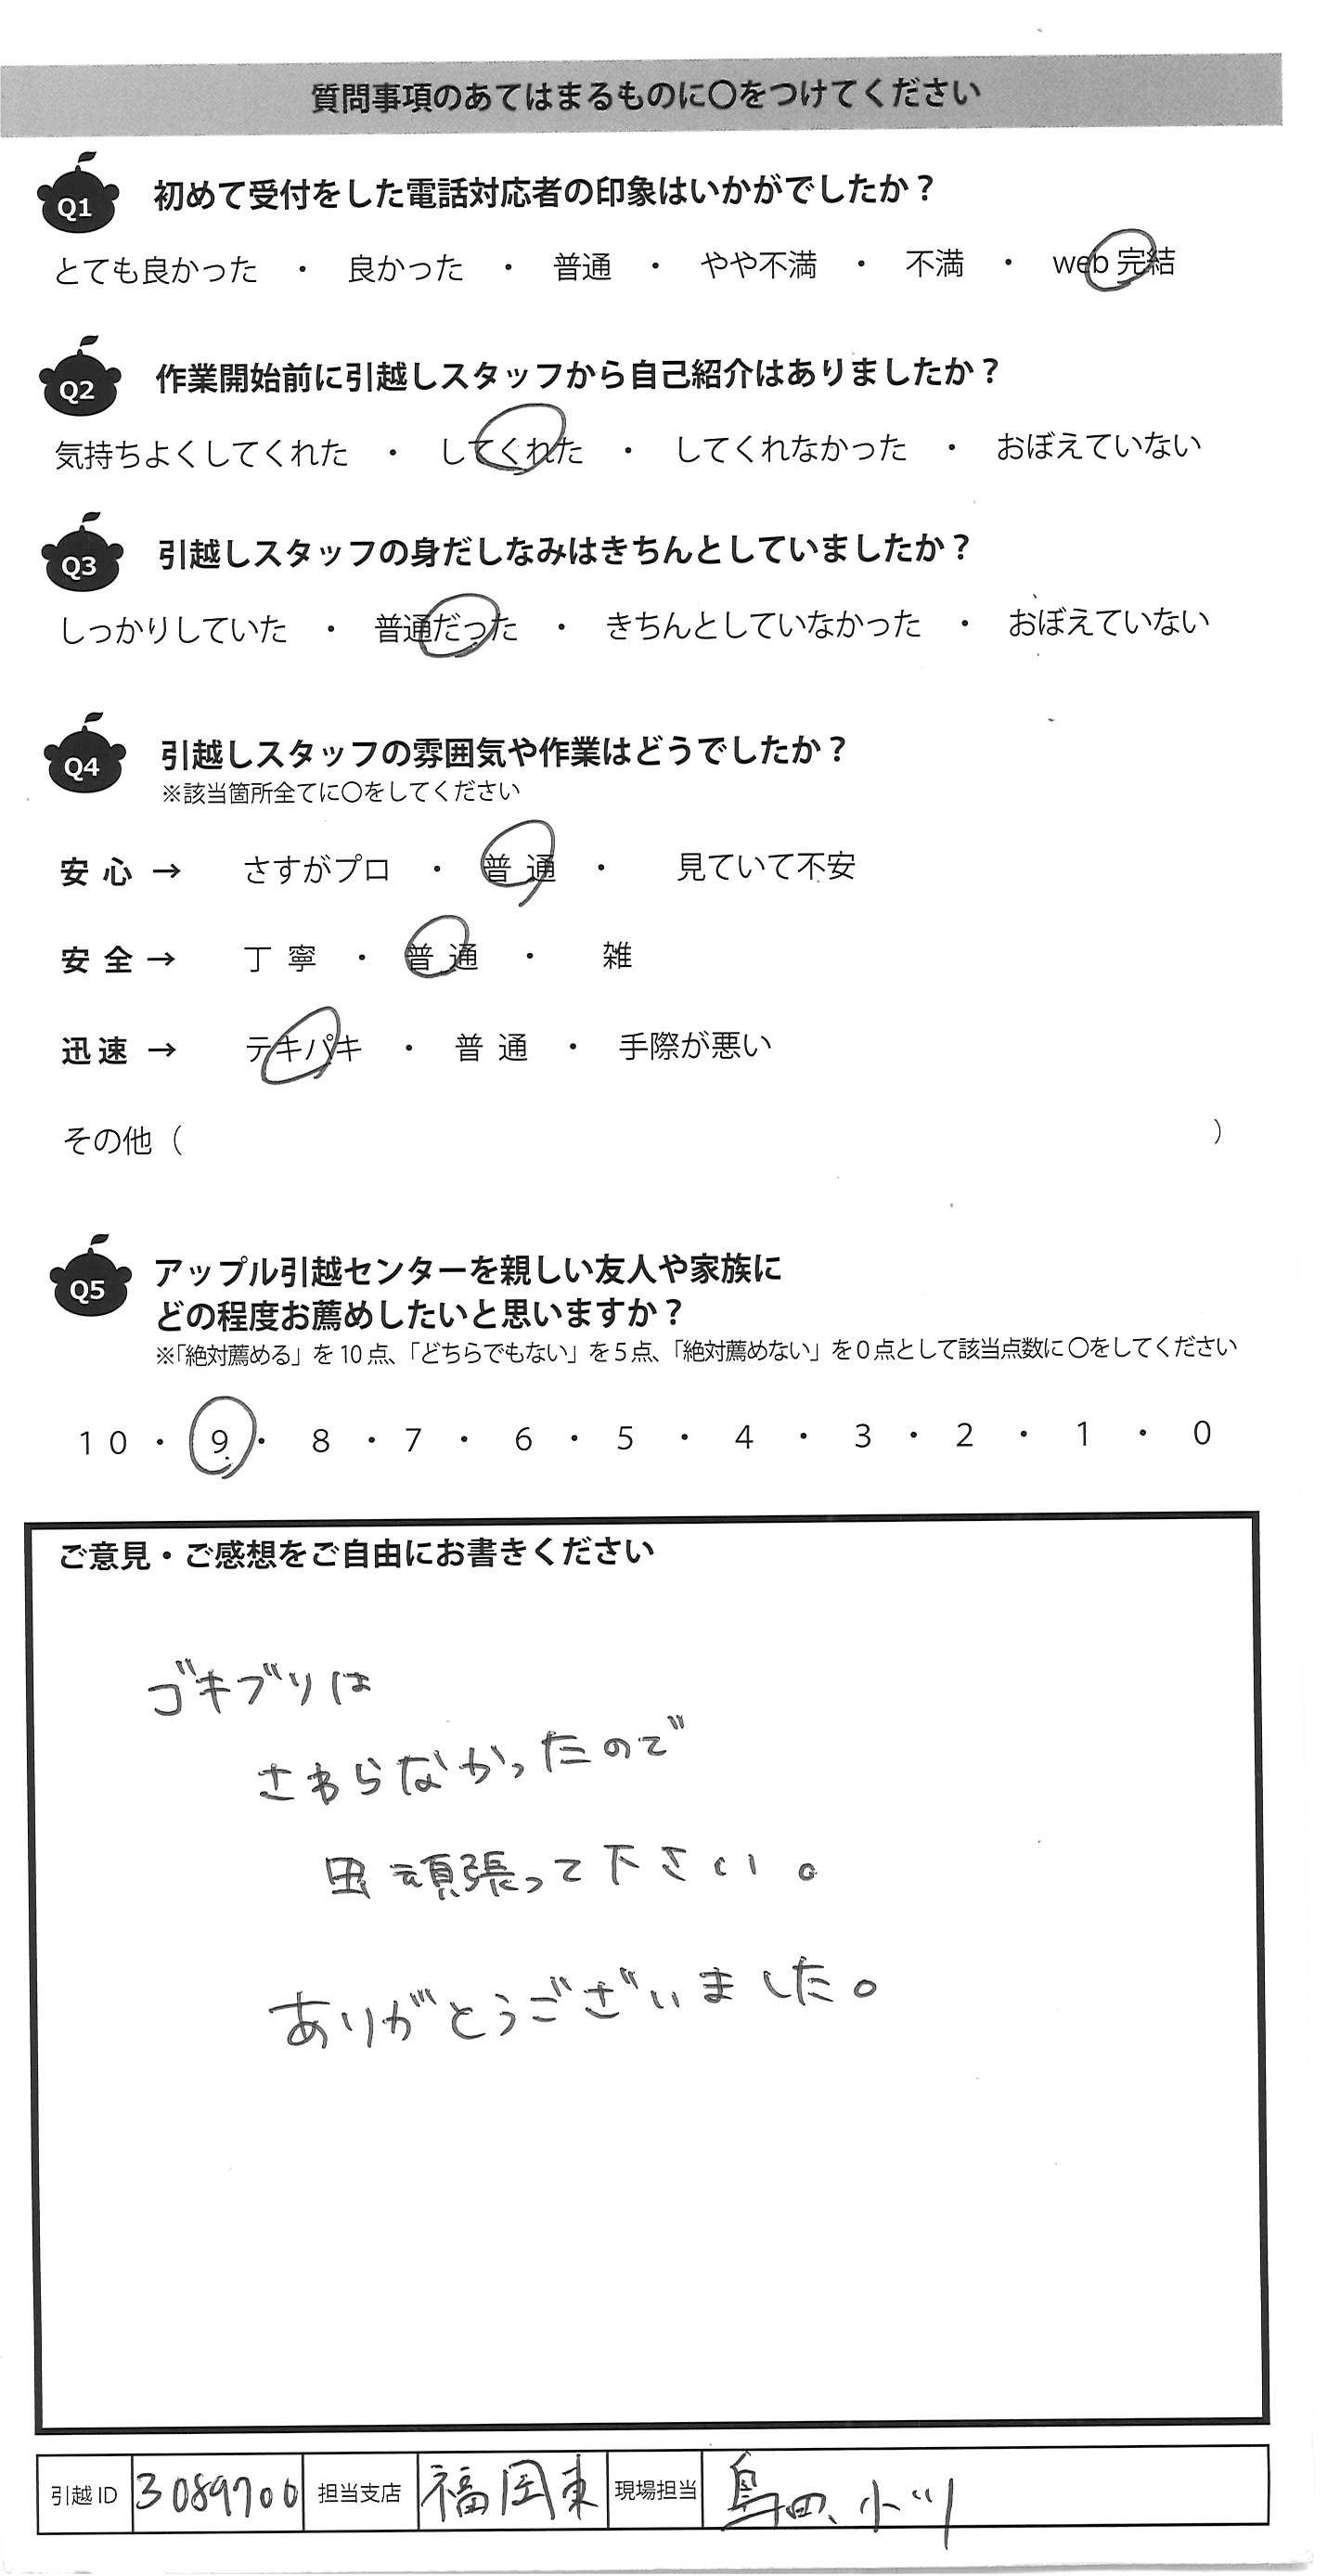 質問事項のあてはまるものに〇をつけてください
Q1 初めて受付をした電話対応者の印象はいかがでしたか？
とても良かった ・ 良かった ・ 普通 ・ やや不満 ・ 不満 ・ web 完結
Q2 作業開始前に引越しスタッフから自己紹介はありましたか？
気持ちよくしてくれた ・ してくれた ・ してくれなかった ・ おぼえていない
Q3 引越しスタッフの身だしなみはきちんとしていましたか？
しっかりしていた ・ 普通だった ・ きちんとしていなかった ・ おぼえていない
Q4 引越しスタッフの雰囲気や作業はどうでしたか？
※該当箇所全てに〇をしてください
安心 → さすがプロ ・ 普通 ・ 見ていて不安
安全 → 丁寧 ・ 普通 ・ 雑
迅速 → テキパキ ・ 普通 ・ 手際が悪い
その他（ ）
Q5 アップル引越センターを親しい友人や家族に
どの程度お薦めしたいと思いますか？
※「絶対薦める」を 10 点、「どちらでもない」を 5 点、「絶対薦めない」を 0 点として該当点数に 〇をしてください
10 ・ 9 ・ 8 ・ 7 ・ 6 ・ 5 ・ 4 ・ 3 ・ 2 ・ 1 ・ 0
ご意見・ご感想をご自由にお書きください
ゴキブリは
さわらなかったので
虫頑張って下さい。
ありがとうございました。
引越 ID 3089700 担当支店 福岡東 現場担当 島田、小川